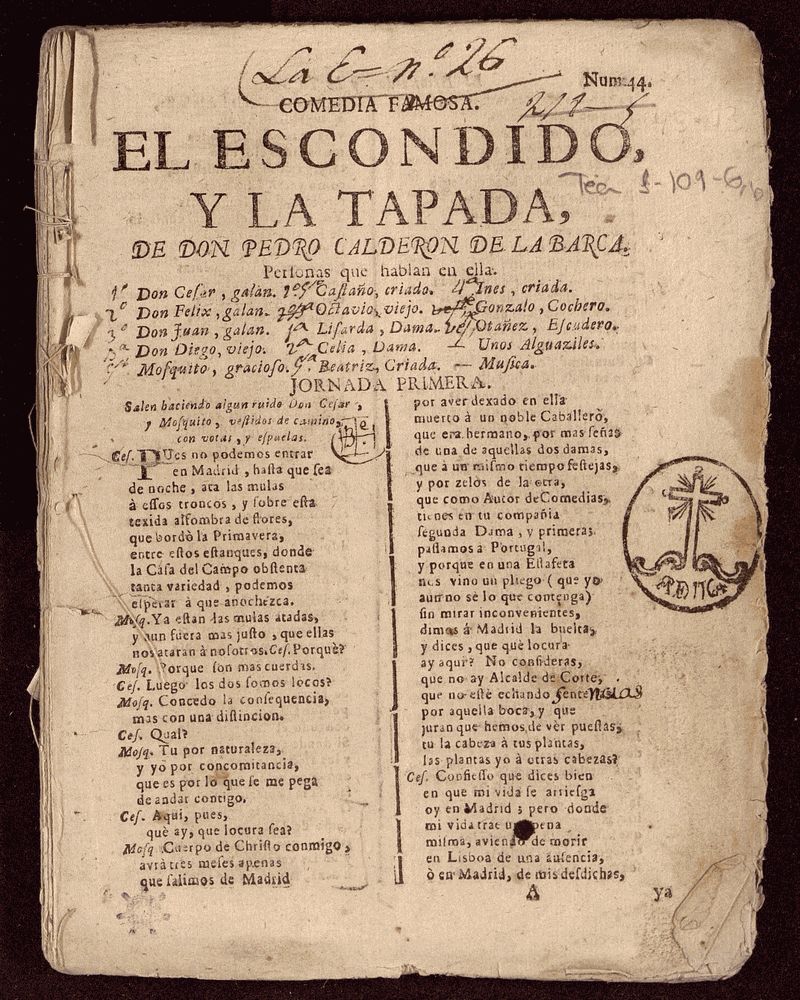 La E= nº 26
Num. 44.
COMEDIA FAMOSA.
EL ESCONDIDO,
Y LA TAPADA,
Tea 1-109-6,
DE DON PEDRO CALDERON DE LA BARCA.
Personas que hablan en ella.
1º Don Cesar, galan. Castaño, criado. 4ª Ines, criada.
2º Don Felix, galan. Octavio, viejo. Gonzalo, Cochero.
3º Don Juan, galan. 1ª Lisarda, Dama. Otañez, Escudero.
Don Diego, viejo. 2ª Celia, Dama. Unos Alguaziles.
Mosquito, gracioso. Beatriz, Criada. — Musica.
JORNADA PRIMERA.
Salen haciendo algun ruido Don Cesar,
y Mosquito, vestidos de camino,
con votas, y espuelas.
Ces. PUes no podemos entrar
en Madrid, hasta que sea
de noche, ata las mulas
à essos troncos, y sobre esta
texida alfombra de flores,
que bordò la Primavera,
entre estos estanques, donde
la Casa del Campo obstenta
tanta variedad, podemos
esperar à que anochezca.
Mosq. Ya estàn las mulas atadas,
y aun fuera mas justo, que ellas
nos ataran à nosotros. Ces. Porquè?
Mosq. Porque son mas cuerdas.
Ces. Luego los dos somos locos?
Mosq. Concedo la consequencia,
mas con una distincion.
Ces. Qual?
Mosq. Tu por naturaleza,
y yo por concomitancia,
que es por lo que se me pega
de andar contigo.
Ces. Aqui, pues,
què ay, que locura sea?
Mosq. Cuerpo de Christo conmigo,
avrà tres meses apenas
que salimos de Madrid
por aver dexado en ella
muerto à un noble Caballero,
que era hermano, por mas señas
de una de aquellas dos damas,
que à un mismo tiempo festejas,
y por zelos de la otra,
que como Autor de Comedias,
tienes en tu compañia
segunda Dama, y primera;
passamos à Portugal,
y porque en una Estafeta
nos vino un pliego (que yo
aun no sè lo que contenga)
sin mirar inconvenientes,
dimos á Madrid la buelta,
y dices, que què locura
ay aqui? No consideras,
que no ay Alcalde de Corte,
que no estè echando sentencias
por aquella boca, y que
juran que hemos de vèr puestas,
tu la cabeza à tus plantas,
las plantas yo à otras cabezas?
Ces. Confiesso que dices bien
en que mi vida se arriesga
oy en Madrid; pero donde
mi vida trae una pena
misma, aviendo de morir
en Lisboa de una ausencia,
ò en Madrid, de mis desdichas,
A
ya